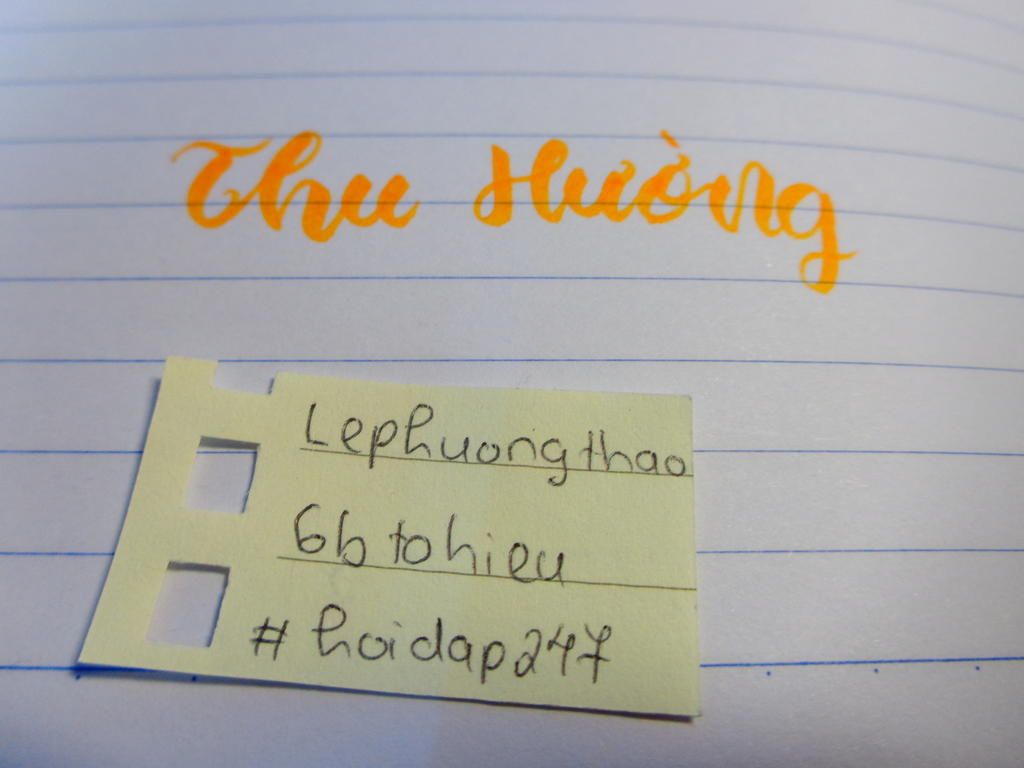 Thu Hường
Lephuongthao
6b tohieu
#hoidap247